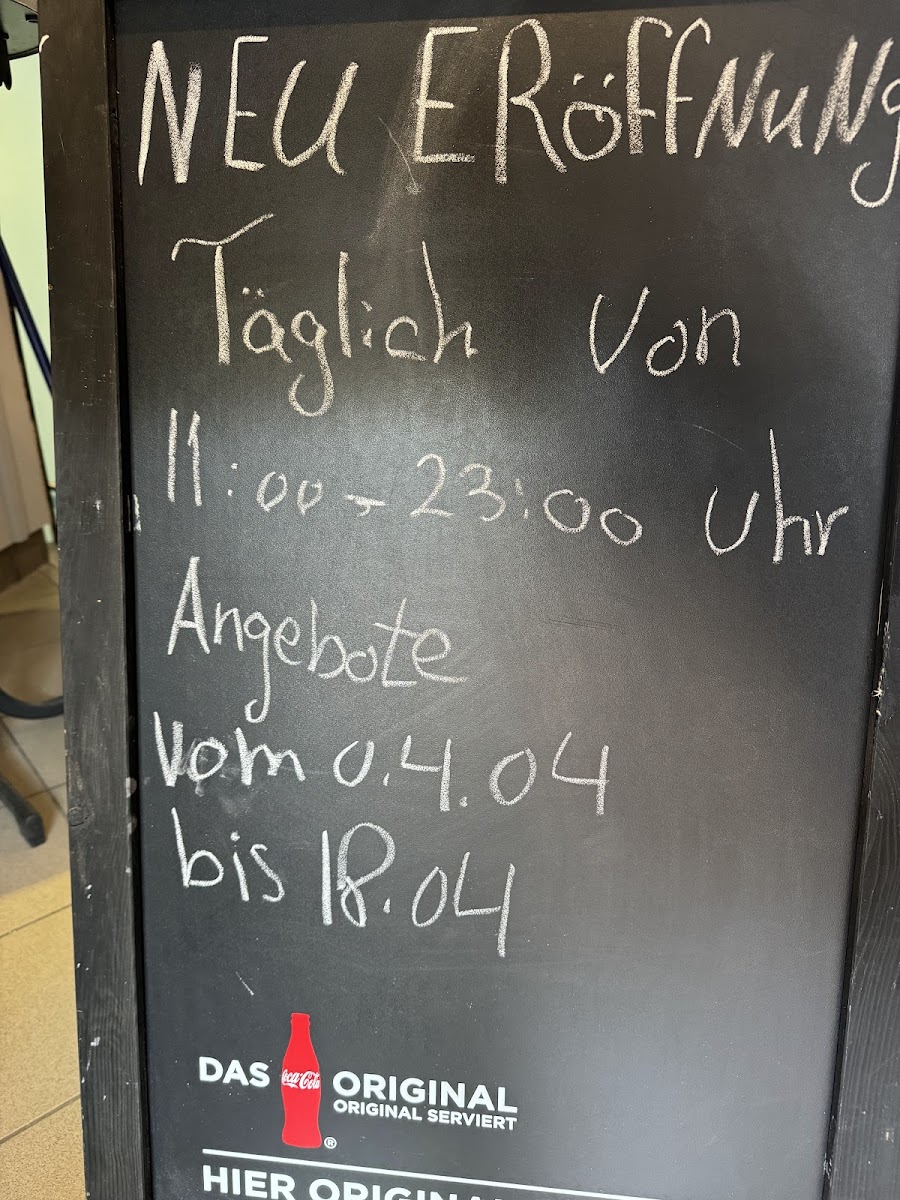 NEU ERÖFFNUNG
Täglich von
11:00 - 23:00 Uhr
Angebote
Vom 0.4.04
bis 18.04
DAS Coca-Cola ® ORIGINAL
ORIGINAL SERVIERT
HIER ORIGINAL